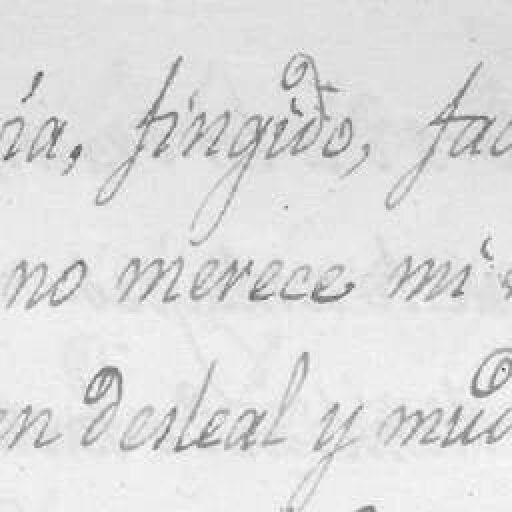 ía, fingido, fac
no merece mi
en desleal y mud